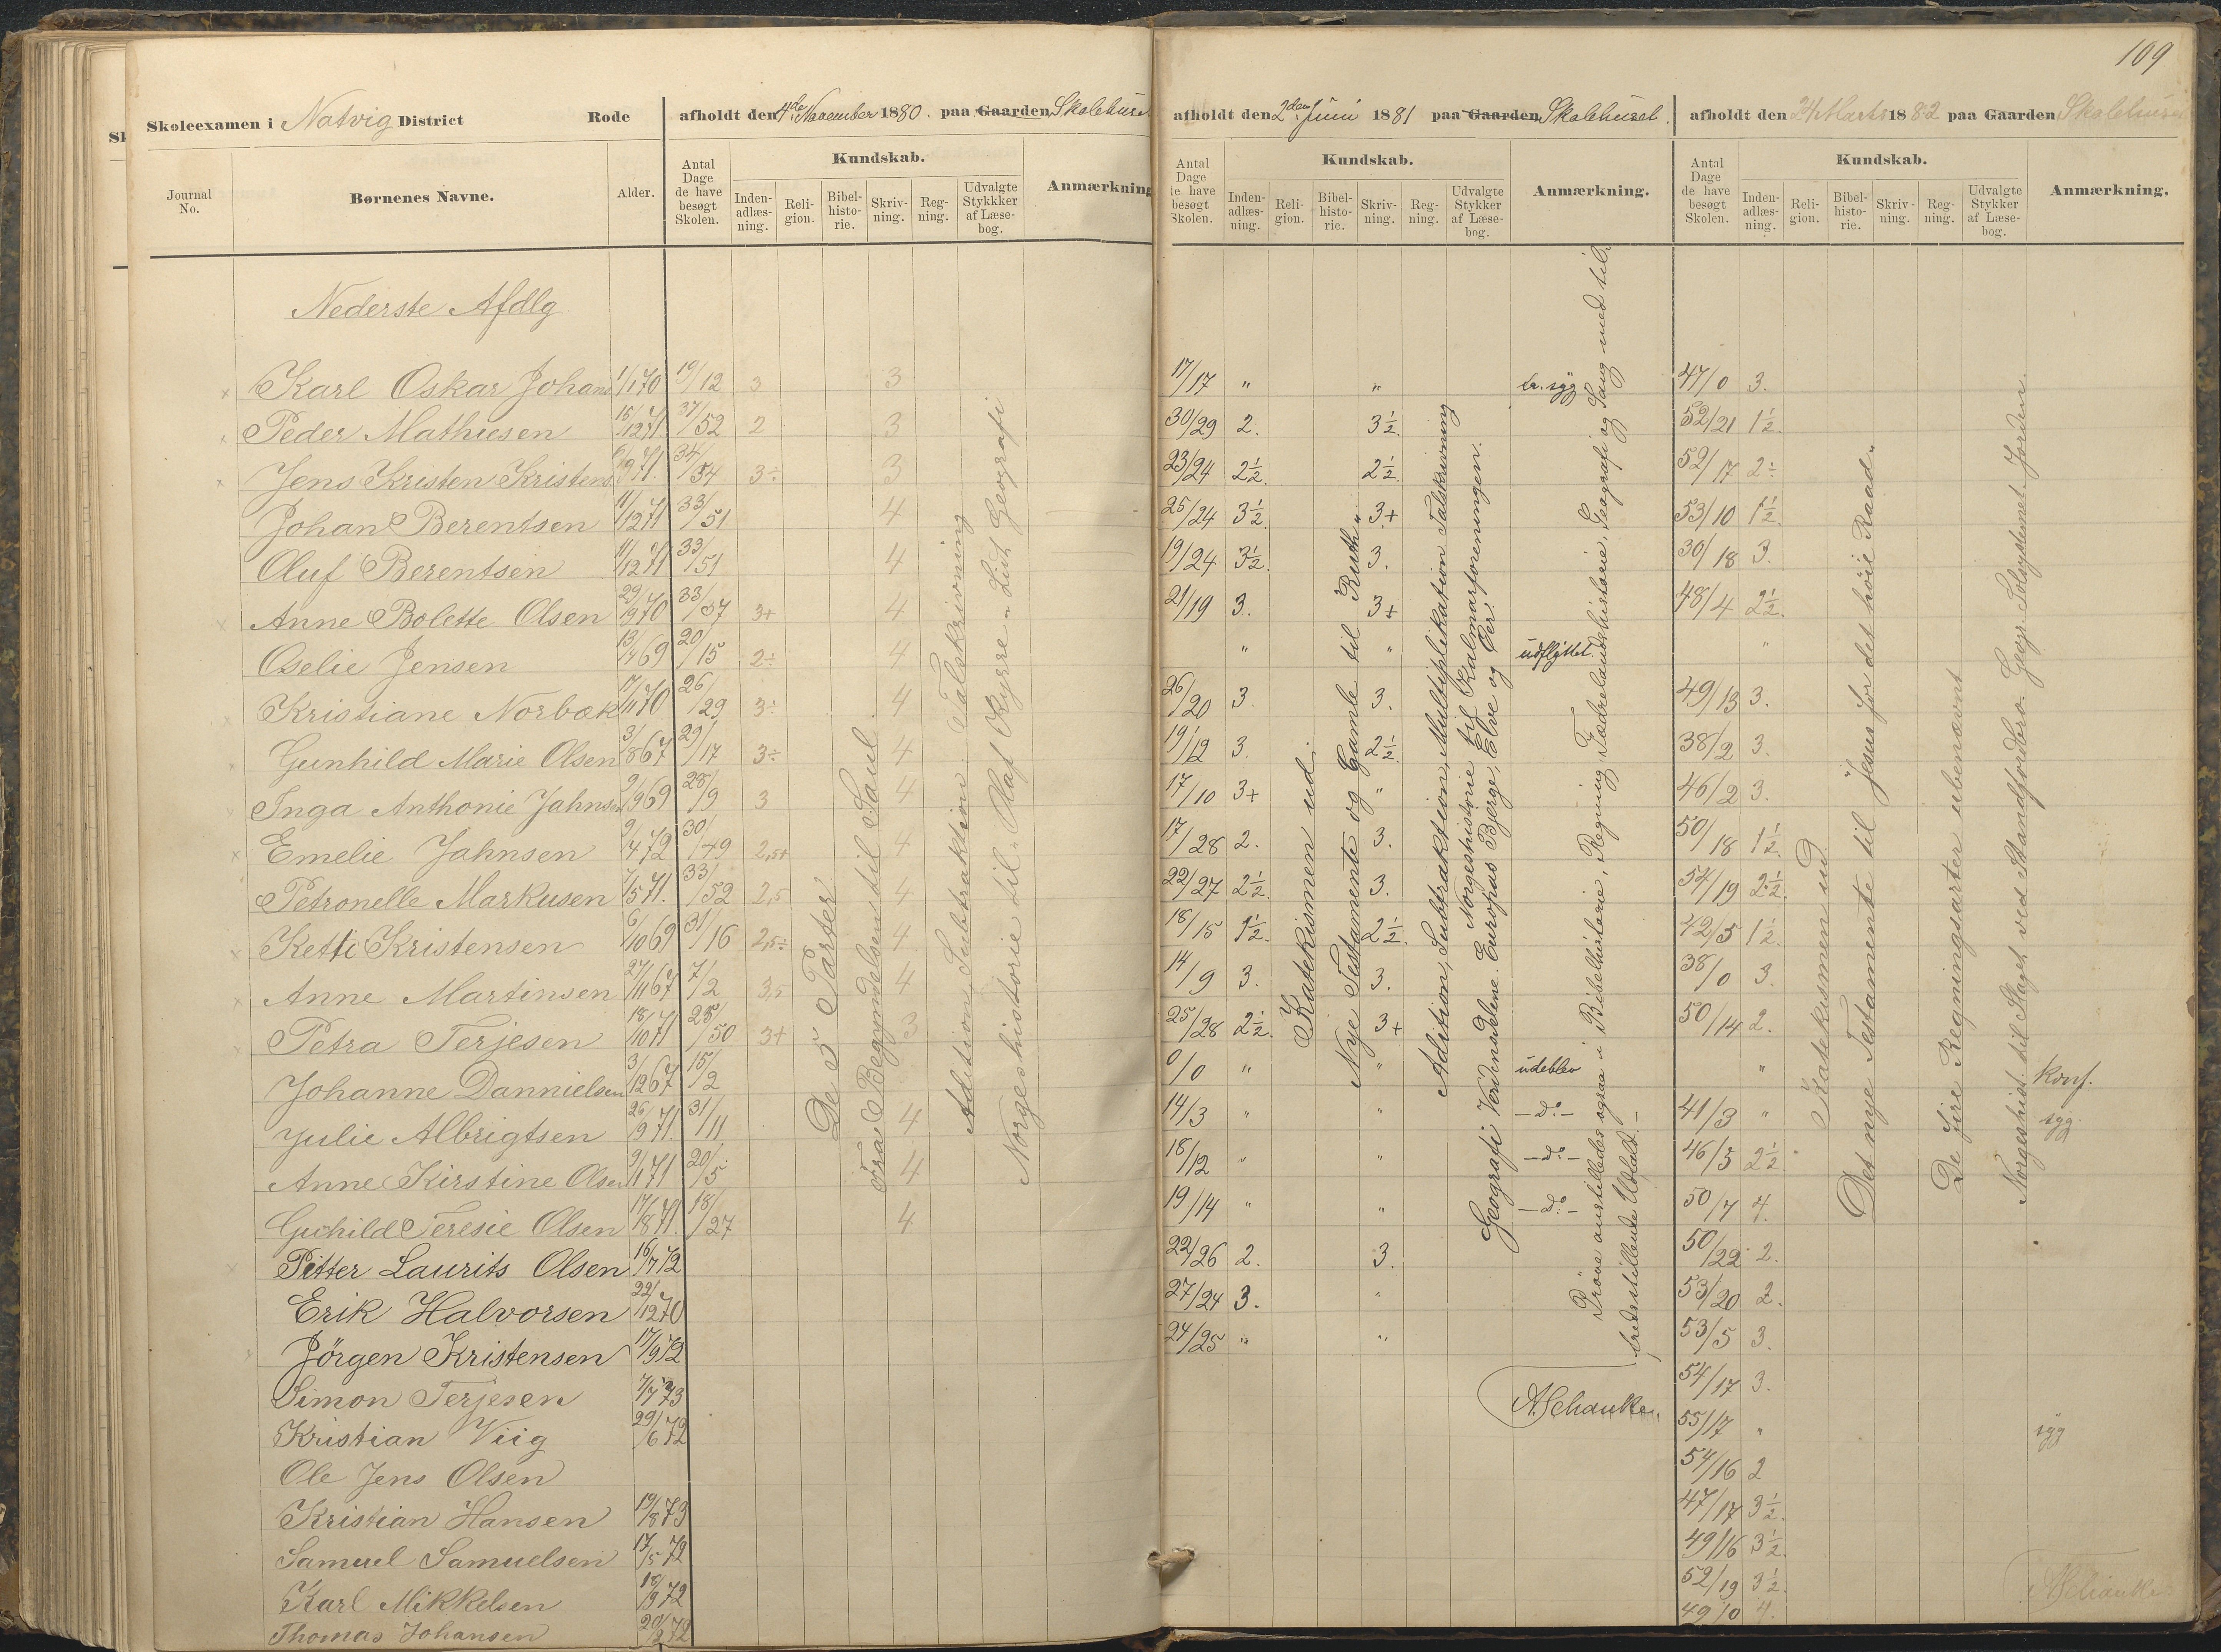 109
Skoleexamen i Natvig District Rode afholdt den 4de November 1880. paa Gaarden Skolehuset afholdt den 2den Juni 1881 paa Gaarden Skolehuset. afholdt den 24 Marts 1882 paa Gaarden Skolehuset
Journal No. Børnenes Navne. Alder. Antal Dage de have besøgt Skolen. Kundskab. Indenadlæsning. Religion. Bibelhistorie. Skrivning. Regning. Udvalgte Stykkker af Læsebog. Anmærkning
Antal Dage de have besøgt Skolen. Kundskab. Indenadlæsning. Religion. Bibelhistorie. Skrivning. Regning. Udvalgte Stykker af Læsebog. Anmærkning.
Antal Dage de have besøgt Skolen. Kundskab. Indenadlæsning. Religion. Bibelhistorie. Skrivning. Regning. Udvalgte Stykker af Læsebog. Anmærkning.
Nederste Afdlg
Karl Oskar Johans 1/1 70 19/12 3 3 17/17 " " br. syg 47/0 3.
Peder Mathiesen 15/12 71. 37/52 2 3 30/29 2. 3½. 52/21 1½.
Jens Kristen Kristens 6/9 71. 34/54 3÷ 3 23/24 2½. 2½. 52/17 2÷
Johan Berentsen 11/12 71 33/51 4 25/24 3½. 3+ 53/10 1½.
Oluf Berentsen 11/12 71 33/51 4 19/24 3½. 3. 30/18 3.
Anne Bolette Olsen 29/9 70 33/57 3+ 4 21/19 3. 3+ 48/4 2½.
Oselie Jensen 13/4 69 20/15 2÷ 4 " " udflyttet. "
Kristiane Norbæk 17/11 70 26/29 3÷ 4 26/20 3. 3. 49/13 3.
Gunhild Marie Olsen 3/8 67 29/17 3÷ 4 19/12 3. 2½. 38/2 3.
Inga Anthonie Jahnsen 9/9 69 28/9 3 4 17/10 3+ " 46/2 3.
Emelie Jahnsen 9/4 72 30/49 2,5+ 4 17/28 2. 3. 50/18 1½.
Petronelle Markusen 7/5 71. 33/52 2,5 4 22/27 2½. 3. 54/19 2½.
Ketti Kristensen 6/10 69 31/16 2,5÷ 4 18/15 1½. 2½. 42/5 1½.
Anne Martinsen 27/11 67 7/2 3,5 4 14/9 3. 3. 38/0 3.
Petra Terjesen 18/10 71 28/50 3+ 3 25/28 2½. 3+ 50/14 2.
Johanne Dannielsen 3/12 67 15/2 0/0 " " udeblev " Konf.
Julie Albrigtsen 26/9 71. 31/11 4 14/3 " " – do – 41/3 " syg
Anne Kirstine Olsen 9/1 71 20/5 4 18/12 " " – do – 46/5 2½
Guhild Teresie Olsen 17/8 71. 18/27 4 19/14 " " – do – 50/7 4.
Pitter Laurits Olsen 16/7 72 22/26 2. 3. 50/22 2.
Erik Halvorsen 22/12 70 27/24 3. " 53/20 2.
Jörgen Kristensen 17/9 72 24/25 " " 53/5 3.
Simon Terjesen 7/7 73 54/17 3.
Kristian Viig 29/6 72 55/17 " syg
Ole Jens Olsen 54/16 2
Kristian Hansen 19/8 73 47/17 3½.
Samuel Samuelsen 17/5 72 49/16 3½.
Karl Mikkelsen 18/9 72 52/19 3½.
Thomas Johansen 20/2 72 49/0 4.
De 5 Parter
Fra Begyndelsen til Saul
Adition, Subtraktion. Talskrivning
Norgeshistorie til „Olaf Kyrre„ Lidt Geografi
Katekismen ud.
Nye Testamente og Gamle til „Ruth„
Adition, Subtraktion, Multiplikation Talskrivning
Norgeshistorie til Kalmarforeningen.
Geografi Verdensdelene. Europas Bjerge, Elve og Øer.
Prøve anstilledes ogsaa i Bibelhistorie, Regning, Fædrelandshistorie, Geografi og Sang med til-
fredsstillende Udfald. –
A. Schanke.
Katekismen ud
Det nye Testamente til „Jesus for det höie Raad„
De fire Regningsarter ubenævnt
Norgeshist. til Slaget ved Stamfordbro. Geogr. Solsystemet. Jorden.
A Schanke